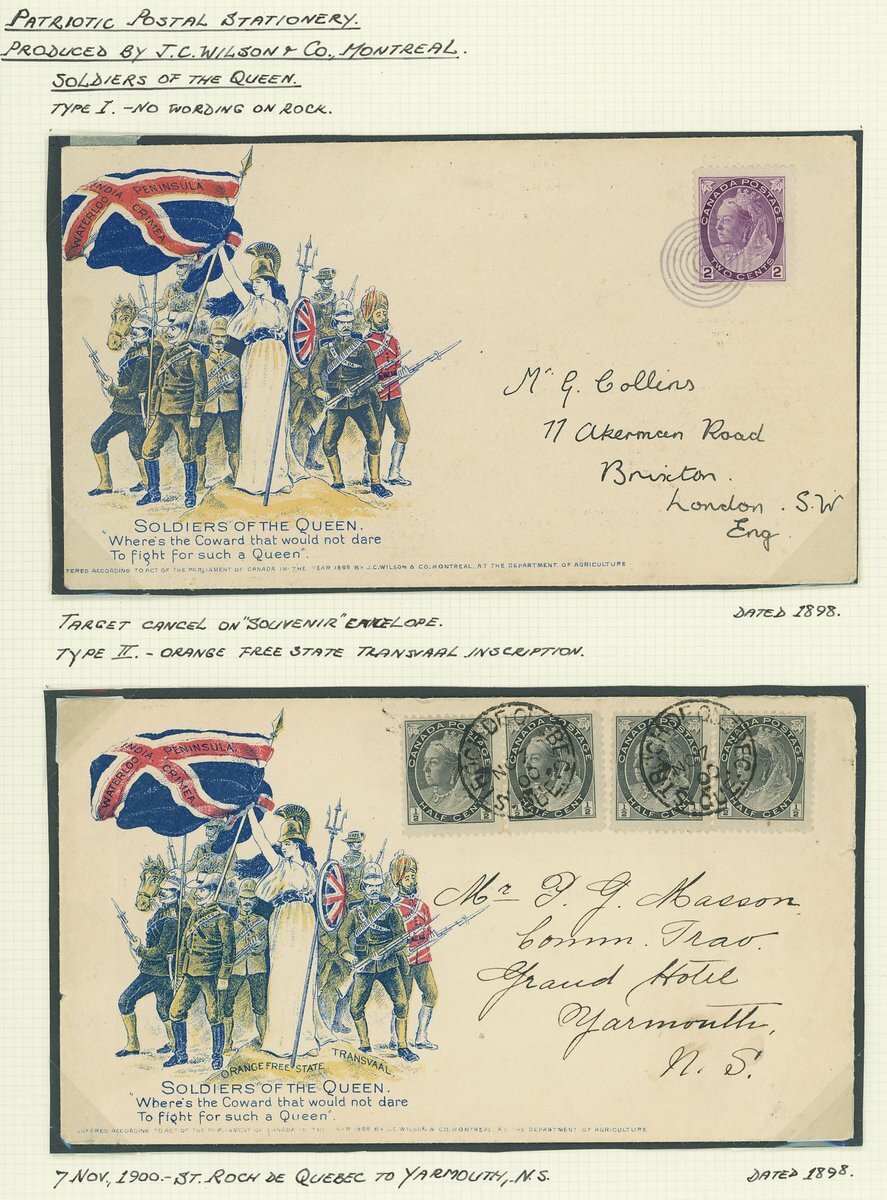 PATRIOTIC POSTAL STATIONERY.
PRODUCED BY J.C. WILSON & CO., MONTREAL.
SOLDIERS OF THE QUEEN.
TYPE I. - NO WORDING ON ROCK.
INDIA PENINSULA
WATERLOO CRIMEA
CANADA POSTAGE
2 TWO CENTS 2
Mr G. Collins
77 Akerman Road
Brixton.
London. S.W
Eng
SOLDIERS OF THE QUEEN.
"Where's the Coward that would not dare
To fight for such a Queen".
TERED ACCORDING TO ACT OF THE PARLIAMENT OF CANADA IN THE YEAR 1898 BY J.C.WILSON & CO.MONTREAL, AT THE DEPARTMENT OF AGRICULTURE
TARGET CANCEL ON "SOUVENIR" ENVELOPE.
DATED 1898.
TYPE II. - ORANGE FREE STATE TRANSVAAL INSCRIPTION.
INDIA PENINSULA
WATERLOO CRIMEA
CANADA POSTAGE CANADA POSTAGE CANADA POSTAGE CANADA POSTAGE
½ HALF CENT ½ HALF CENT ½ ½ HALF CENT HALF CENT ½
Mr P. G. Masson
Comm. Trav.
Grand Hotel
Yarmouth,
N. S.
ORANGE FREE STATE TRANSVAAL
SOLDIERS OF THE QUEEN.
"Where's the Coward that would not dare
To fight for such a Queen".
NTERED ACCORDING TO ACT OF THE PARLIAMENT OF CANADA IN THE YEAR 1898 BY J.C.WILSON & CO.MONTREAL, AT THE DEPARTMENT OF AGRICULTURE
7 NOV., 1900. - ST. ROCH DE QUEBEC TO YARMOUTH, N.S.
DATED 1898.